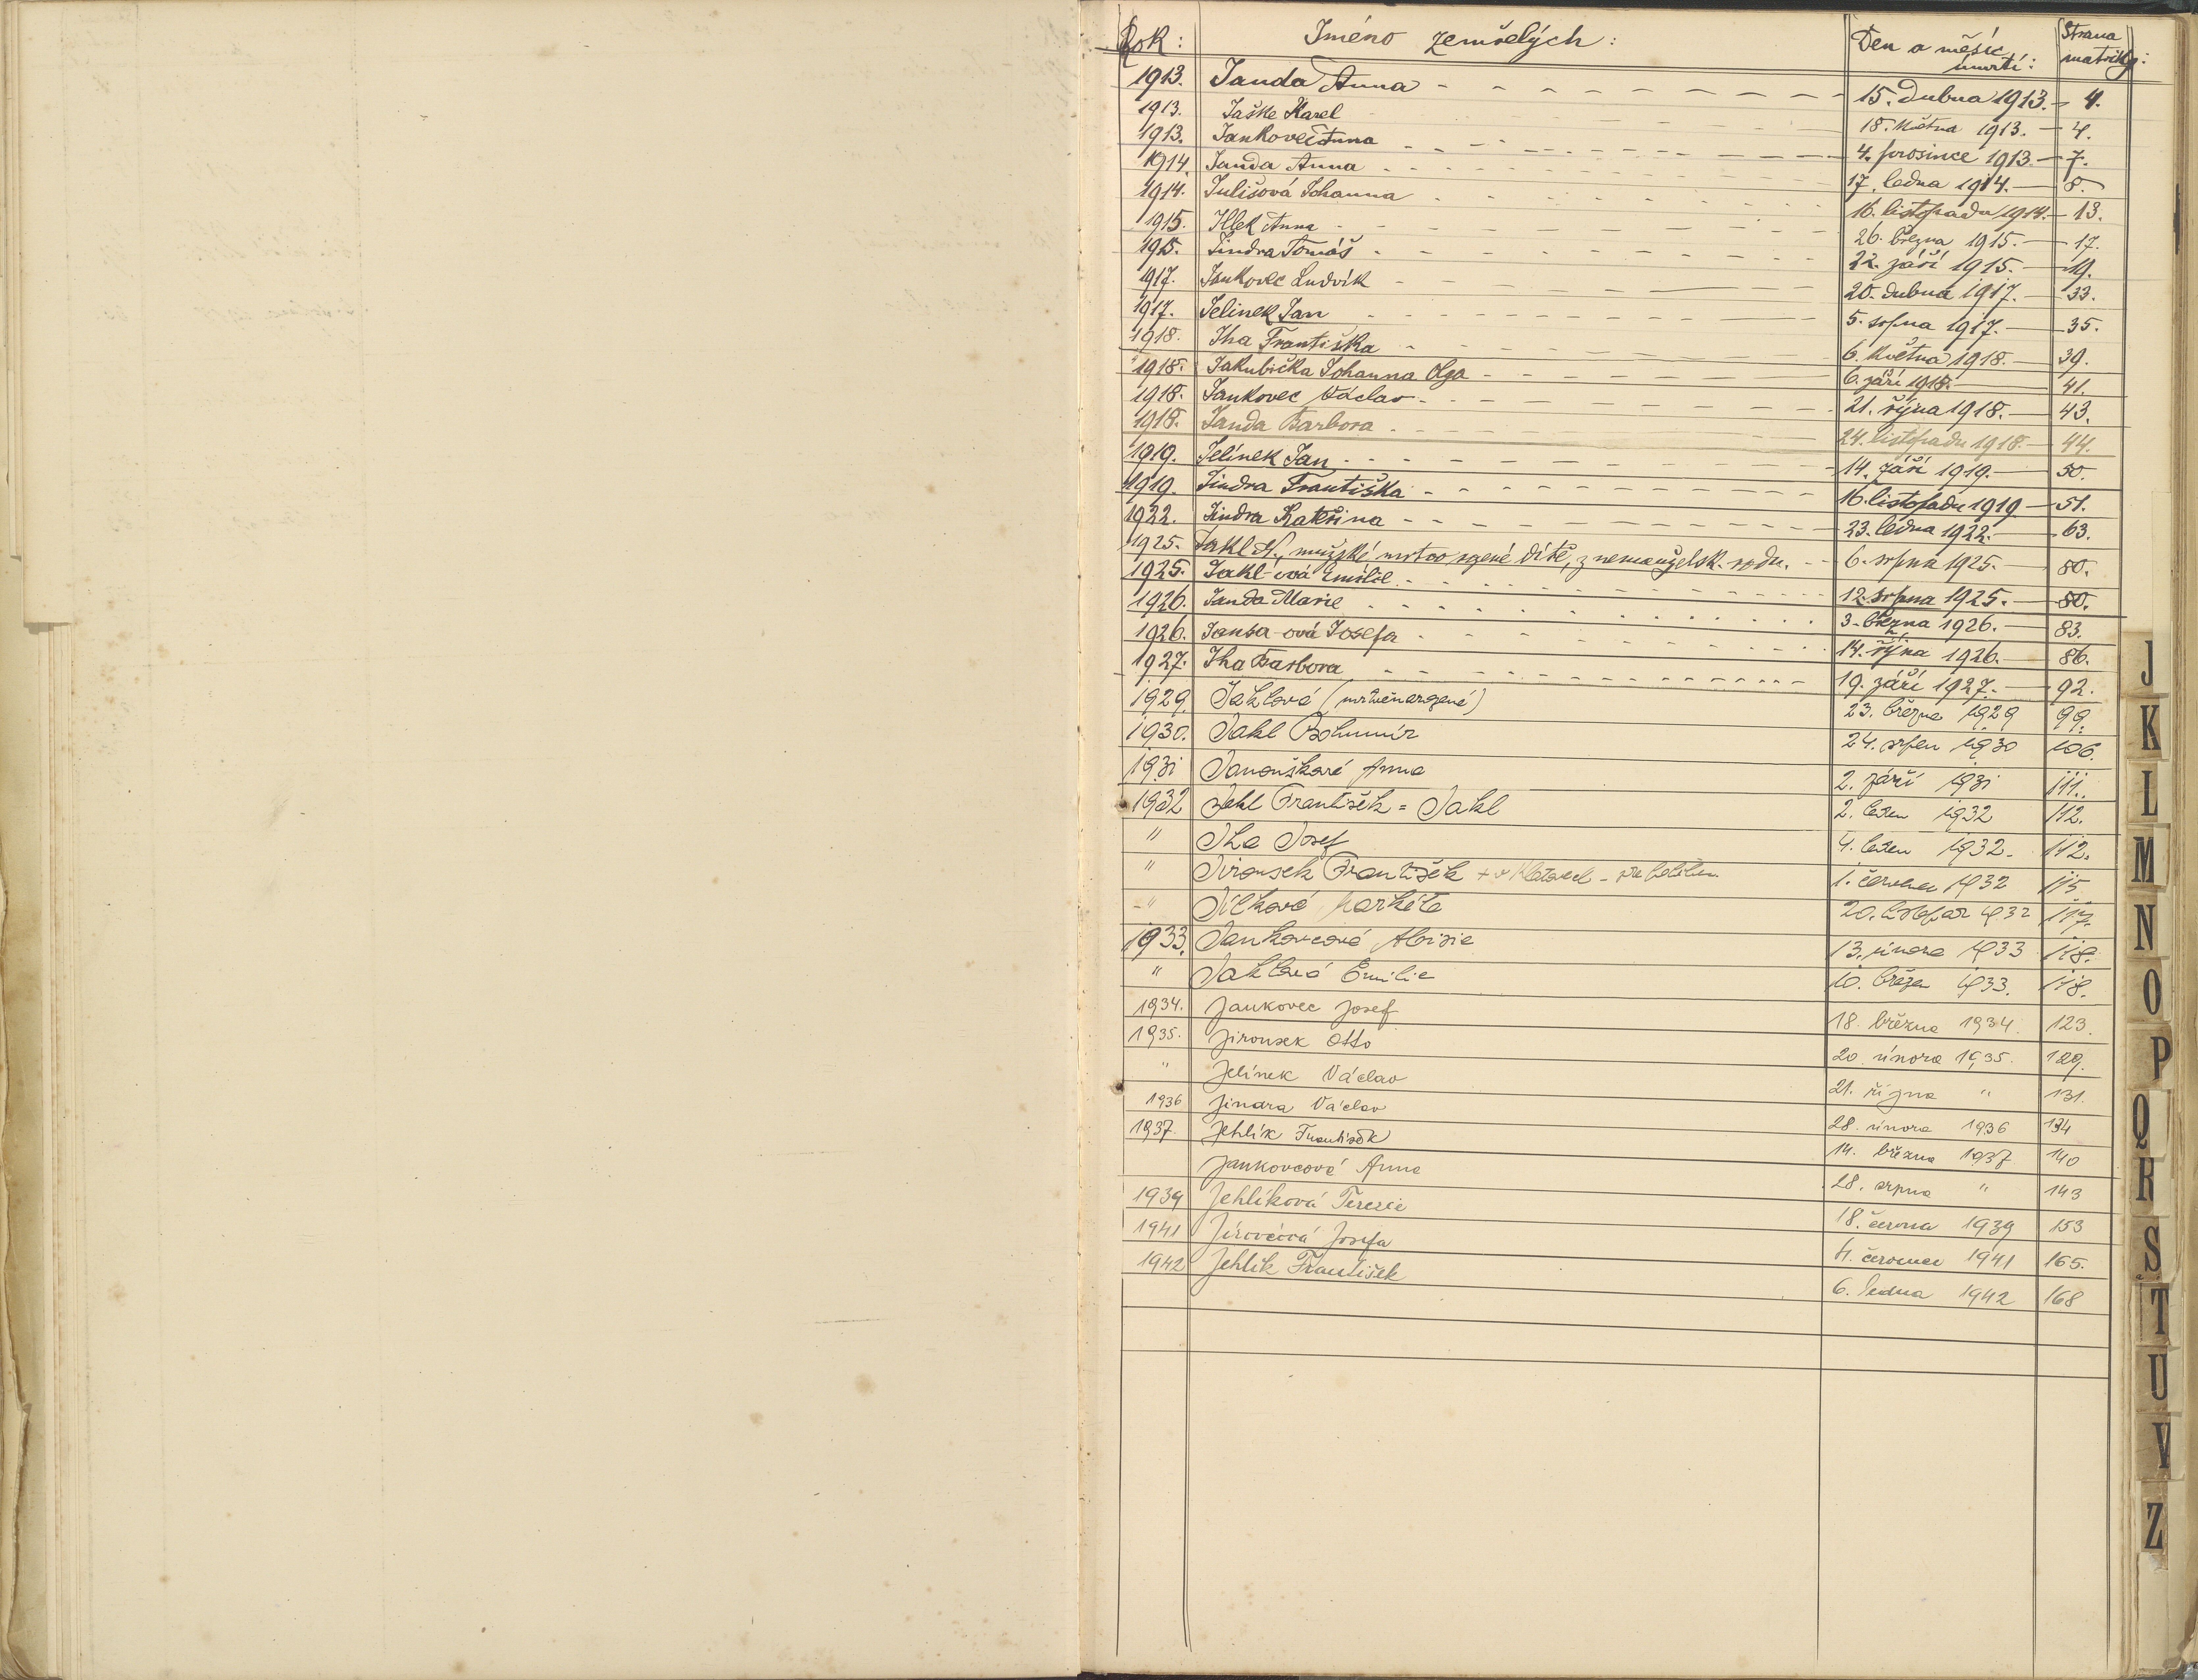 Rok: Jméno zemřelých: Den a měsíc úmrtí: Strana matriky:
1913. Janda Anna 15. dubna 1913. 4.
1913. Jaške Karel 18. května 1913. 4.
1913. Jankovec Anna 4. prosince 1913. 7.
1914. Janda Anna 17. ledna 1914. 8.
1914. Julišová Johanna 16. listopadu 1914. 13.
1915. Jílek Anna 26. března 1915. 17.
1915. Jindra Tomáš 22. září 1915. 19.
1917. Jankovec Ludvík 20. dubna 1917. 33.
1917. Jelinek Jan 5. srpna 1917. 35.
1918. Jha Františka 6. května 1918. 39.
1918. Jakubička Johanna Olga 6. září 1918. 41.
1918. Jankovec Václav 21. října 1918. 43.
1918. Janda Barbora 24. listopadu 1918. 44.
1919. Jelínek Jan 14. září 1919. 50.
1919. Jindra Františka 16. listopadu 1919 51.
1922. Jindra Kateřina 23. ledna 1922. 63.
1925. Jakl N., mužské mrtvo rozené dítě, z nemanželsk. rodu. 6. srpna 1925. 80.
1925. Jakl-ová Emílie 12. srpna 1925. 80.
1926. Janda Marie 3. března 1926. 83.
1926. Jansa-ová Josefa 14. října 1926. 86.
1927. Jha Barbora 19. září 1927. 92.
1929. Jaklová (mrtvěnarozené) 23. března 1929 99.
1930. Jakl Bohumír 24. srpen 1930 106.
1931 Janoušková Anna 2. září 1931 111.
1932 Jekl František = Jakl 2. leden 1932 112.
" Jha Josef 4. leden 1932. 112.
" Jirousek František + v Klatovech - 1. červenec 1932 115
" Jílková Markéta 20. listopad 1932 117.
1933. Jankovcová Aloisie 13. února 1933 118.
" Jaklová Emilie 10. březen 1933. 118.
1934. Jankovec Josef 18. března 1934. 123.
1935. Jirousek Otto 20. února 1935. 129.
" Jelínek Václav 21. října " 131.
1936 Jindra Václav 28. února 1936 134
1937. Jehlík František 14. března 1937 140
Jankovcová Anna 28. srpna " 143
1939 Jehlíková Terezie 18. června 1939 153
1941 Jírovcová Josefa 4. červenec 1941 165.
1942 Jehlík František 6. ledna 1942 168
J
K
L
M
N
O
P
Q
R
S
T
U
V
Z